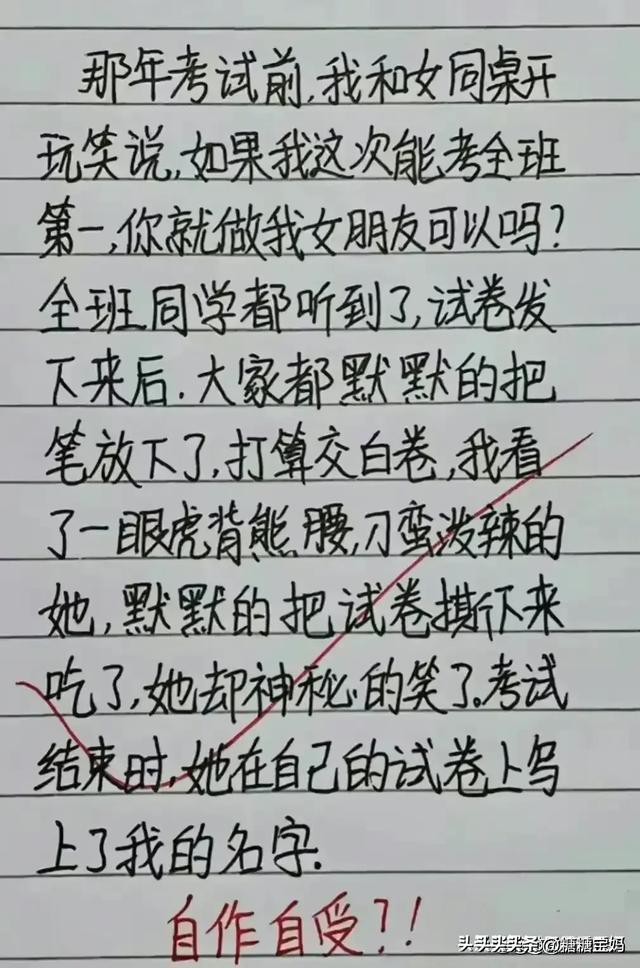 那年考试前,我和女同桌开
玩笑说,如果我这次能考全班
第一,你就做我女朋友可以吗?
全班同学都听到了,试卷发
下来后.大家都默默的把
笔放下了,打算交白卷,我看
了一眼虎背熊腰,刁蛮泼辣的
她,默默的把试卷撕下来
吃了,她却神秘的笑了.考试
结束时,她在自己的试卷上写
上了我的名字.
自作自受?!
头条 @糖糖宝妈